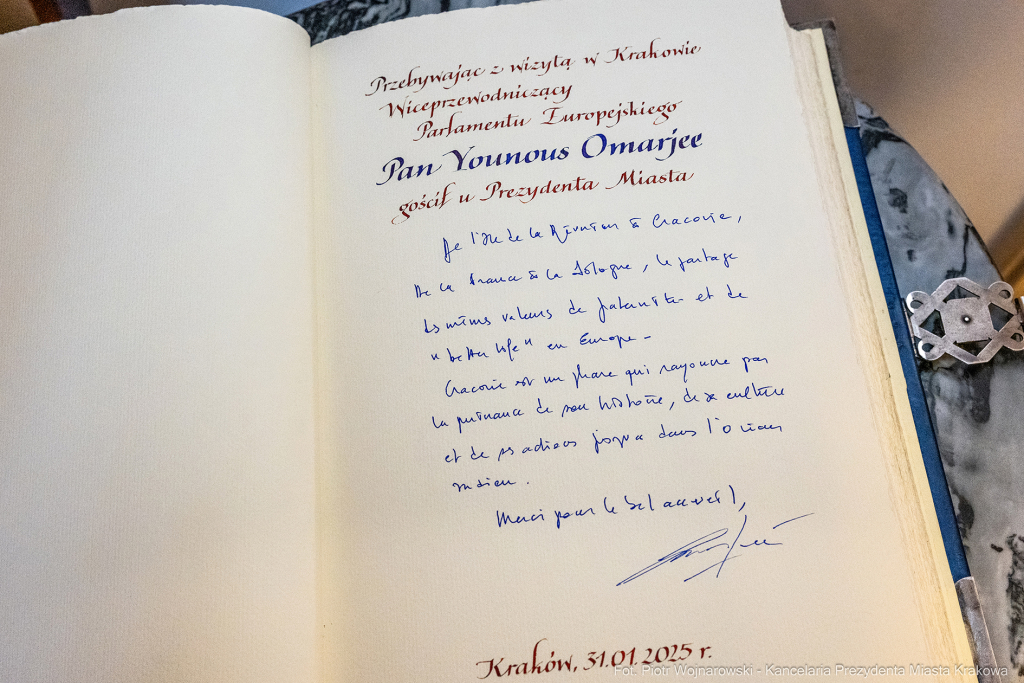 Przebywając z wizytą w Krakowie
Wiceprzewodniczący
Parlamentu Europejskiego
Pan Younous Omarjee
gościł u Prezydenta Miasta
De l'Île de la Réunion à Cracovie,
De la France à la Pologne, le partage
des mêmes valeurs de fraternité et de
"better life" en Europe -
Cracovie est un phare qui rayonne par
la puissance de son histoire, de sa culture
et de ses actions jusque dans l'Océan
indien.
Merci pour le bel accueil,
Kraków, 31.01.2025 r.
Fot. Piotr Wojnarowski - Kancelaria Prezydenta Miasta Krakowa